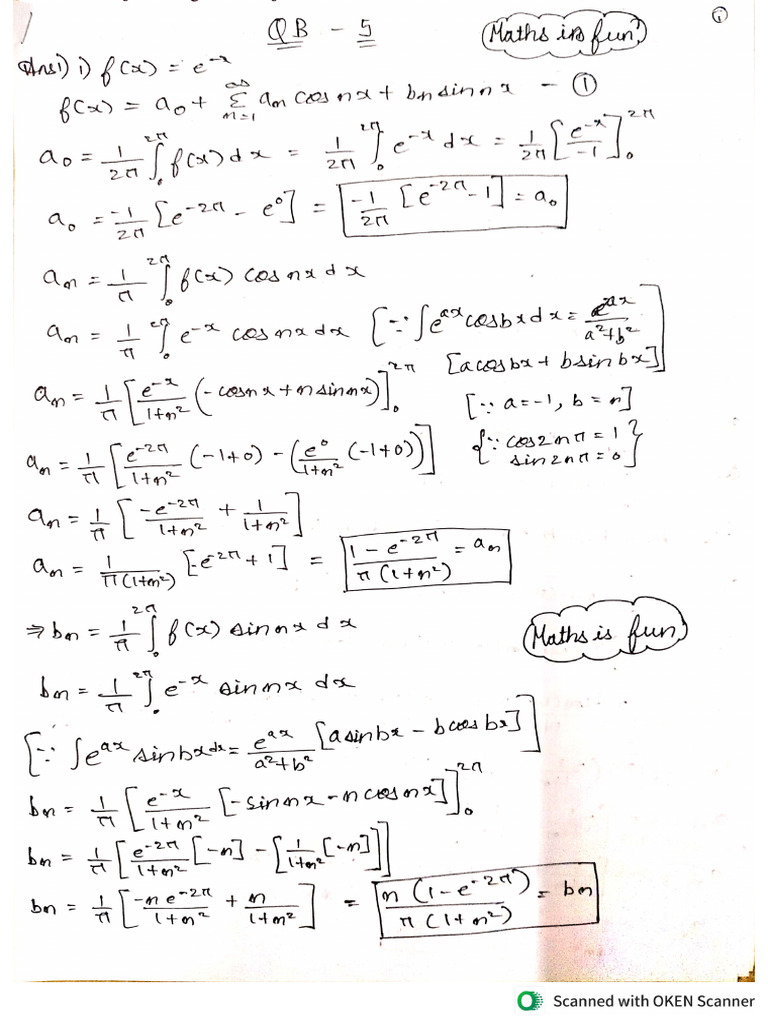 QB - 5
Maths is fun!
①
Ans1) i) f(x) = e^-x
f(x) = a₀ + ∞Σn=1 an cos nx + bn sin nx - ①
a₀ = 1/2π ∫₀^2π f(x) dx = 1/2π ∫₀^2π e^-x dx = 1/2π [e^-x/-1]₀^2π
a₀ = -1/2π [e^-2π - e⁰] = -1/2π [e^-2π - 1] = a₀
an = 1/π ∫₀^2π f(x) cos nx dx
an = 1/π ∫₀^2π e^-x cos nx dx [∵ ∫e^ax cos bx dx = e^ax/a²+b²
[a cos bx + b sin bx]]
an = 1/π [e^-x/1+n² (-cos nx + n sin nx)]₀^2π [∵ a = -1, b = n]
an = 1/π [e^-2π/1+n² (-1+0) - (e⁰/1+n² (-1+0))] {∵ cos 2nπ = 1
sin 2nπ = 0}
an = 1/π [-e^-2π/1+n² + 1/1+n²]
an = 1/π(1+n²) [-e^-2π + 1] = 1 - e^-2π/π(1+n²) = an
⇒ bn = 1/π ∫₀^2π f(x) sin nx dx
Maths is fun
bn = 1/π ∫₀^2π e^-x sin nx dx
[∵ ∫e^ax sin bx dx = e^ax/a²+b² [a sin bx - b cos bx]]
bn = 1/π [e^-x/1+n² [-sin nx - n cos nx]]₀^2π
bn = 1/π [e^-2π/1+n² [-n] - [1/1+n² [-n]]]
bn = 1/π [-n e^-2π/1+n² + n/1+n²] = n(1 - e^-2π)/π(1+n²) = bn
Scanned with OKEN Scanner